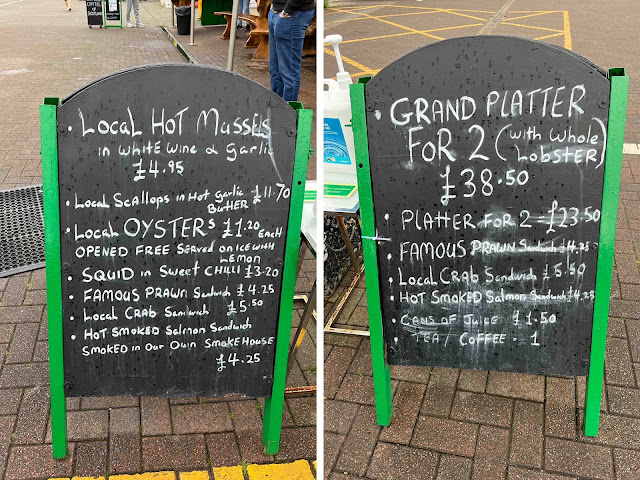 CAPITAL
OF SCOTLAND
• Local HOT Mussels
in white wine & garlic
£4.95
• Local Scallops in Hot garlic £11.70
BUTTER
• Local OYSTERS £1.20 Each
OPENED FREE Served on ICE WISH
LEMON
SQUID in Sweet CHILLI £3.20
• FAMOUS PRAWN Sandwich £4.25
• Local CRAB Sandwich £5.50
• HOT SMOKED Salmon Sandwich
SMOKED in Our Own SMOKEHOUSE
£4.25
• GRAND PLATTER
FOR 2 (with whole
Lobster)
£38.50
• PLATTER FOR 2 = £23.50
• FAMOUS PRAWN Sandwich £4.25
Local CRAB Sandwich £5.50
HOT SMOKED Salmon Sandwich £4.25
• CANS OF JUICE £1.50
• TEA / COFFEE • 1